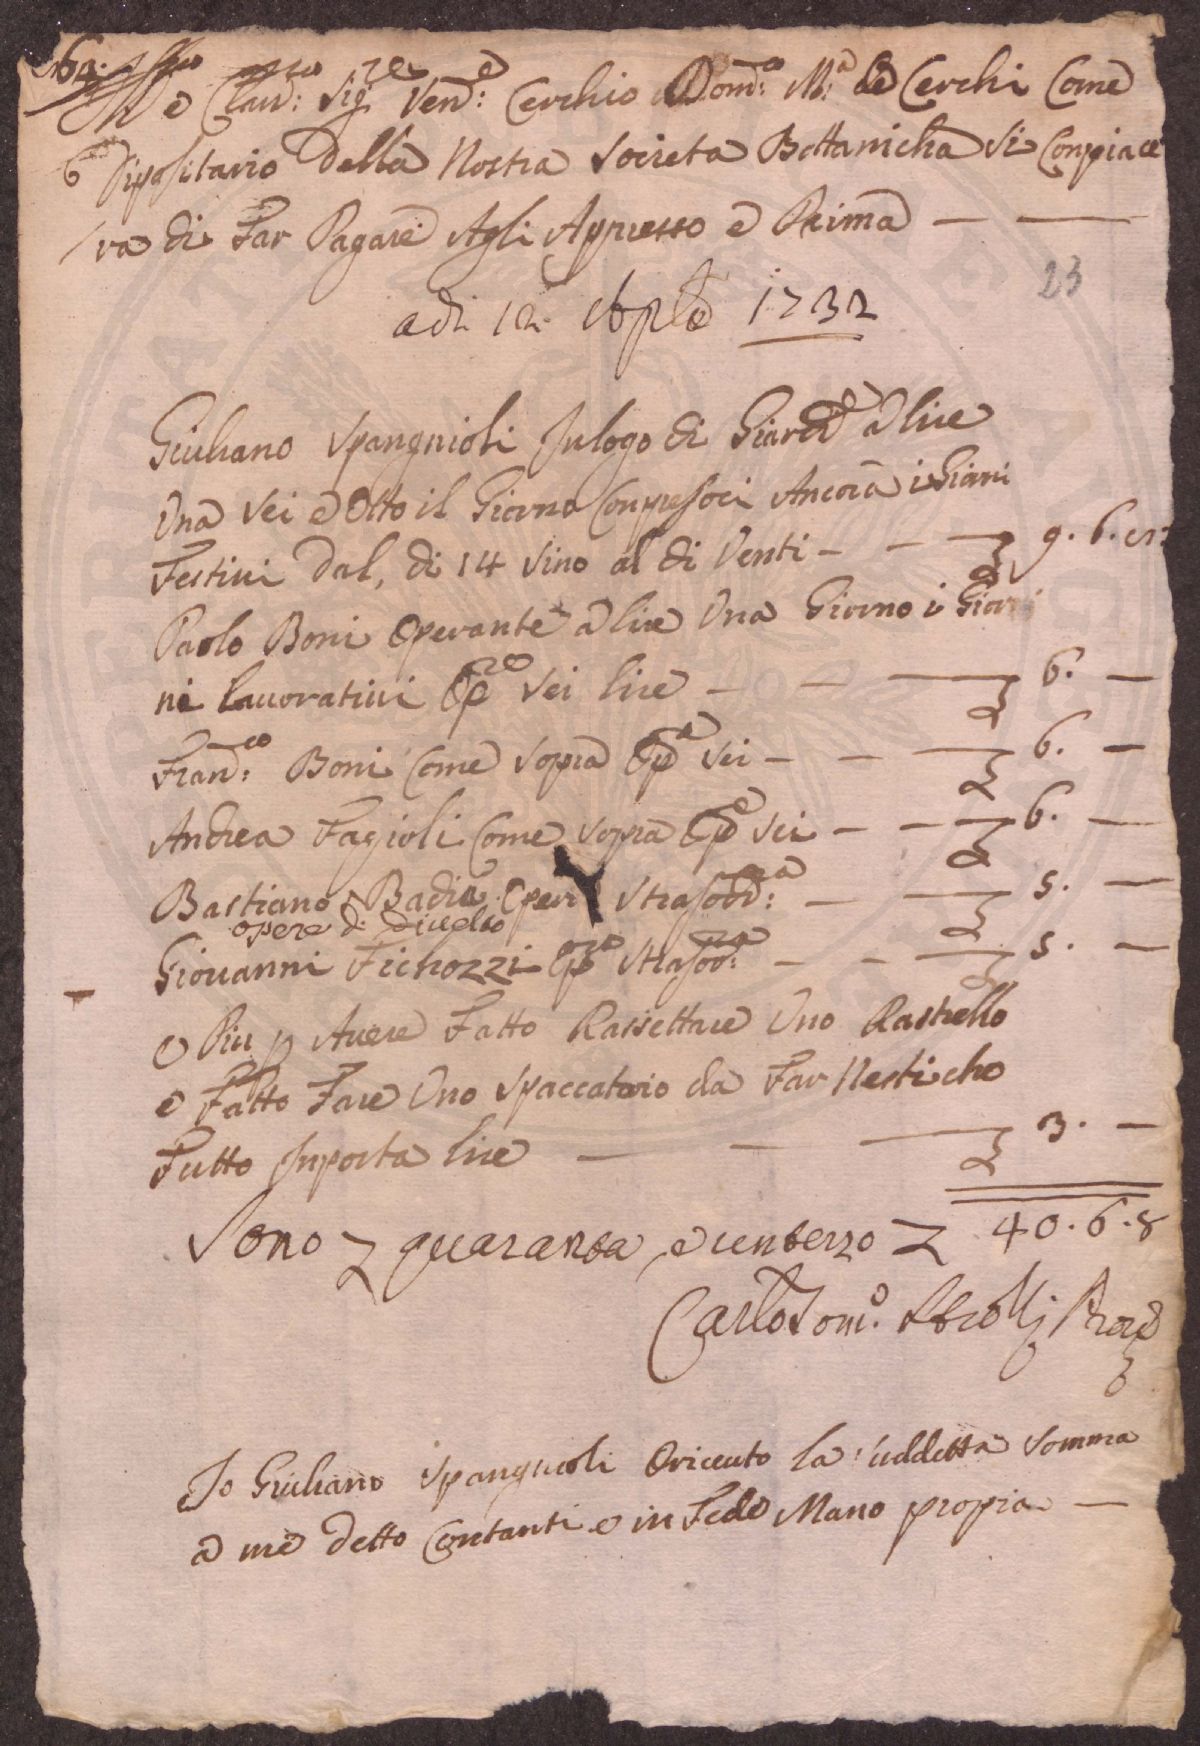 e Clar: Sig.re Vend:e Cerchio Dom:co M:a de Cerchi Come
Dipositario Della Nostra Societa Bottanicha Si Conpiace
ra di Far Pagare Agli Appresso e Prima
23
adi 12 1732
Giuliano Spangnioli Inlogo di Giard:e A lire
Una Sei e Otto il Giorno Conpresoci Ancora i Giorni
Festivi Dal, di 14 Sino al di Venti 9. 6.
Paolo Boni Operante a lire Una Giorno i Gior
ni lavorativi Op:re Sei lire 6.
Fran:co Boni Come Sopra Op:e Sei 6.
Andrea Fagioli Come Sopra Op:e Sei 6.
Bastiano Badia Oper Strasord:a 5.
opere di diveltо
Giovanni Fichozzi Op:re Strasord:ra 5.
e Piu p Avere Fatto Rassettare Uno Rastrello
e Fatto Fare Uno Spaccatorio da Far Nesti che
Tutto Inporta lire 3.
Sono quaranta e un terzo 40.6.8
Carlo Dom:o
Io Giuliano Spangnioli O riceuto la Suddetta Somma
a me detto Contanti e in Fede Mano propia